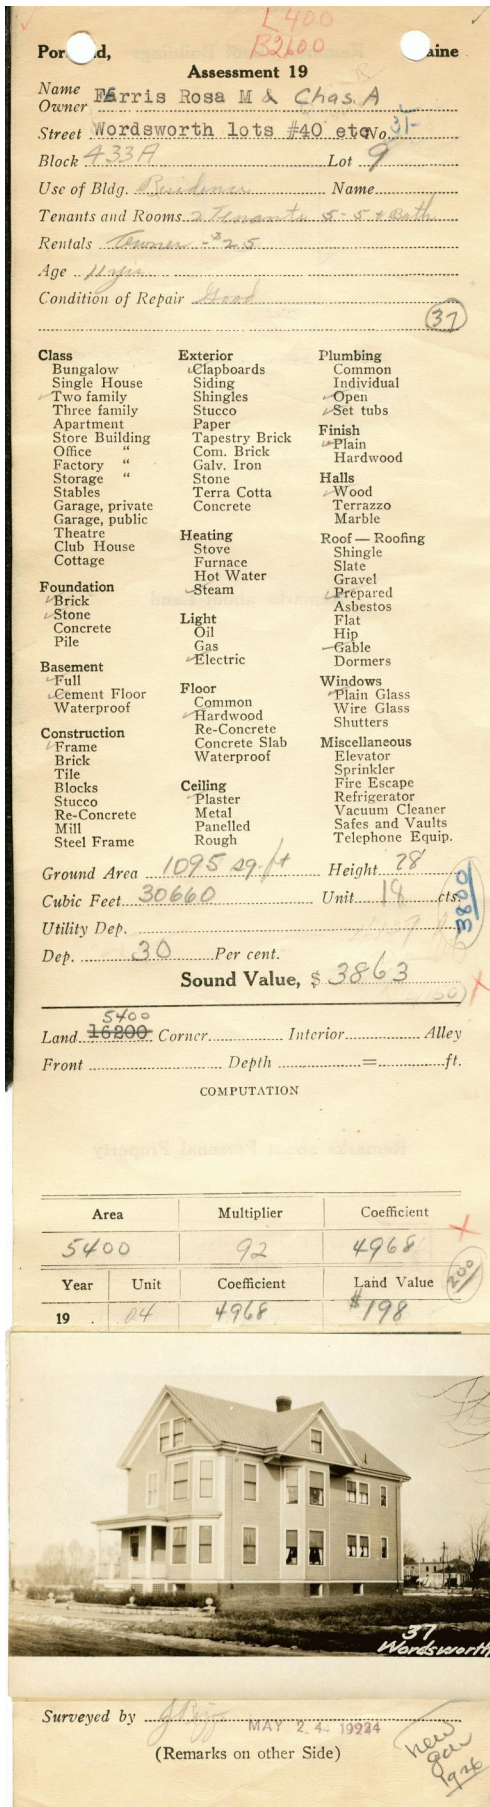 L 400
B2600
Por nd, aine
Assessment 19
Name Owner Farris Rosa M & Chas. A
Street Wordsworth lots #40 etc No. 37
Block 433A Lot 9
Use of Bldg. Residence Name
Tenants and Rooms 2 Tenants 5-5 + Bath
Rentals 1 owner - $25
Age 11 yrs
Condition of Repair Good
37
Class
Bungalow
Single House
Two family
Three family
Apartment
Store Building
Office "
Factory "
Storage "
Stables
Garage, private
Garage, public
Theatre
Club House
Cottage
Foundation
Brick
Stone
Concrete
Pile
Basement
Full
Cement Floor
Waterproof
Construction
Frame
Brick
Tile
Blocks
Stucco
Re-Concrete
Mill
Steel Frame
Exterior
Clapboards
Siding
Shingles
Stucco
Paper
Tapestry Brick
Com. Brick
Galv. Iron
Stone
Terra Cotta
Concrete
Heating
Stove
Furnace
Hot Water
Steam
Light
Oil
Gas
Electric
Floor
Common
Hardwood
Re-Concrete
Concrete Slab
Waterproof
Ceiling
Plaster
Metal
Panelled
Rough
Plumbing
Common
Individual
Open
Set tubs
Finish
Plain
Hardwood
Halls
Wood
Terrazzo
Marble
Roof — Roofing
Shingle
Slate
Gravel
Prepared
Asbestos
Flat
Hip
Gable
Dormers
Windows
Plain Glass
Wire Glass
Shutters
Miscellaneous
Elevator
Sprinkler
Fire Escape
Refrigerator
Vacuum Cleaner
Safes and Vaults
Telephone Equip.
Ground Area 1095 sq. ft Height 28
Cubic Feet 30660 Unit 18 cts.
3800
Utility Dep.
Dep. 30 Per cent.
Sound Value, $ 3863
5400
Land 16200 Corner Interior Alley
Front Depth = ft.
COMPUTATION
Area Multiplier Coefficient
5400 92 4968
Year Unit Coefficient Land Value
200
19 . 04 4968 $198
37
Wordsworth
Surveyed by
MAY 24 1924
(Remarks on other Side)
new
gar
1926